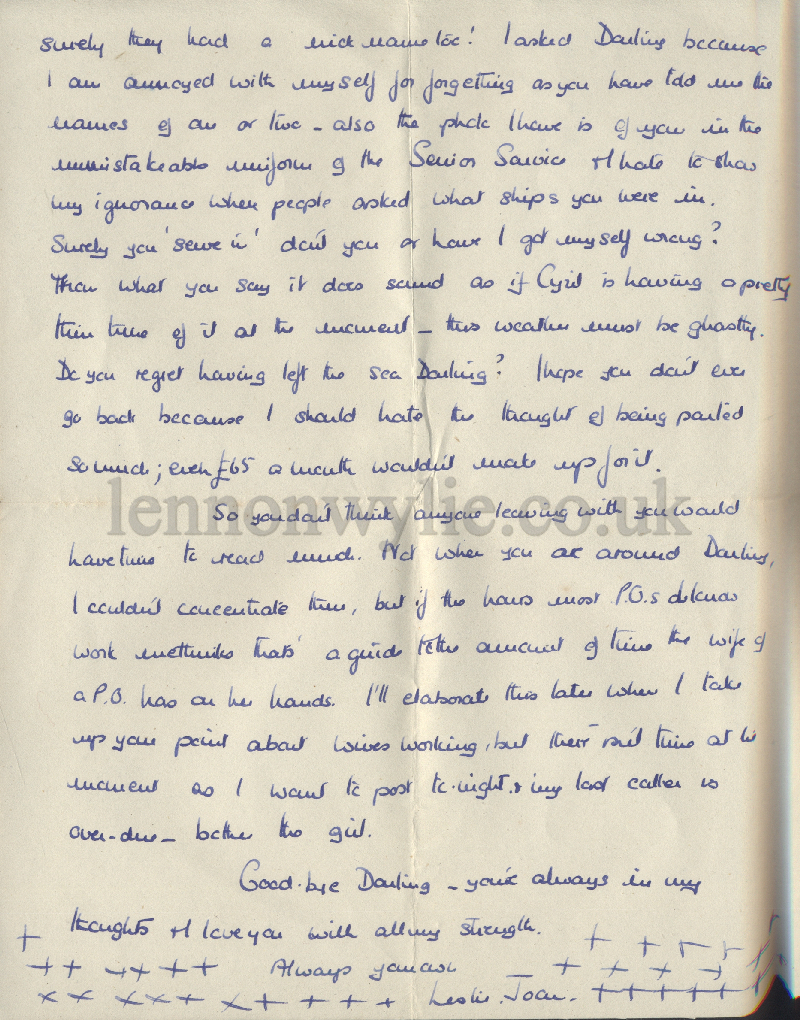 surely they had a nick name too! I asked Darling because
I am annoyed with myself for forgetting as you have told me the
names of one or two - also the photo I have is of you in the
unmistakeable uniform of the Senior Service & I hate to show
my ignorance when people asked what ships you were in.
Surely you 'serve in' don't you or have I got myself wrong?
From what you say it does sound as if Cyril is having a pretty
thin time of it at the moment - this weather must be ghastly.
Do you regret having left the sea Darling? I hope you don't ever
go back because I should hate the thought of being parted
so much; even £65 a month wouldn't make up for it.
lennonwylie.co.uk
So you don't think anyone leaving with you would
have time to read much. Not when you are around Darling,
I couldn't concentrate then, but if the hours most P.O.s
work methinks that's a guide to the amount of time the wife of
a P.O. has on her hands. I'll elaborate this later when I take
up your point about wives working, but there isn't time at the
moment as I want to post to-night & my last caller is
over-due - bother the girl.
Good-bye Darling - you're always in my
thoughts & I love you with all my strength.
Always your own
Leslie. Joan.